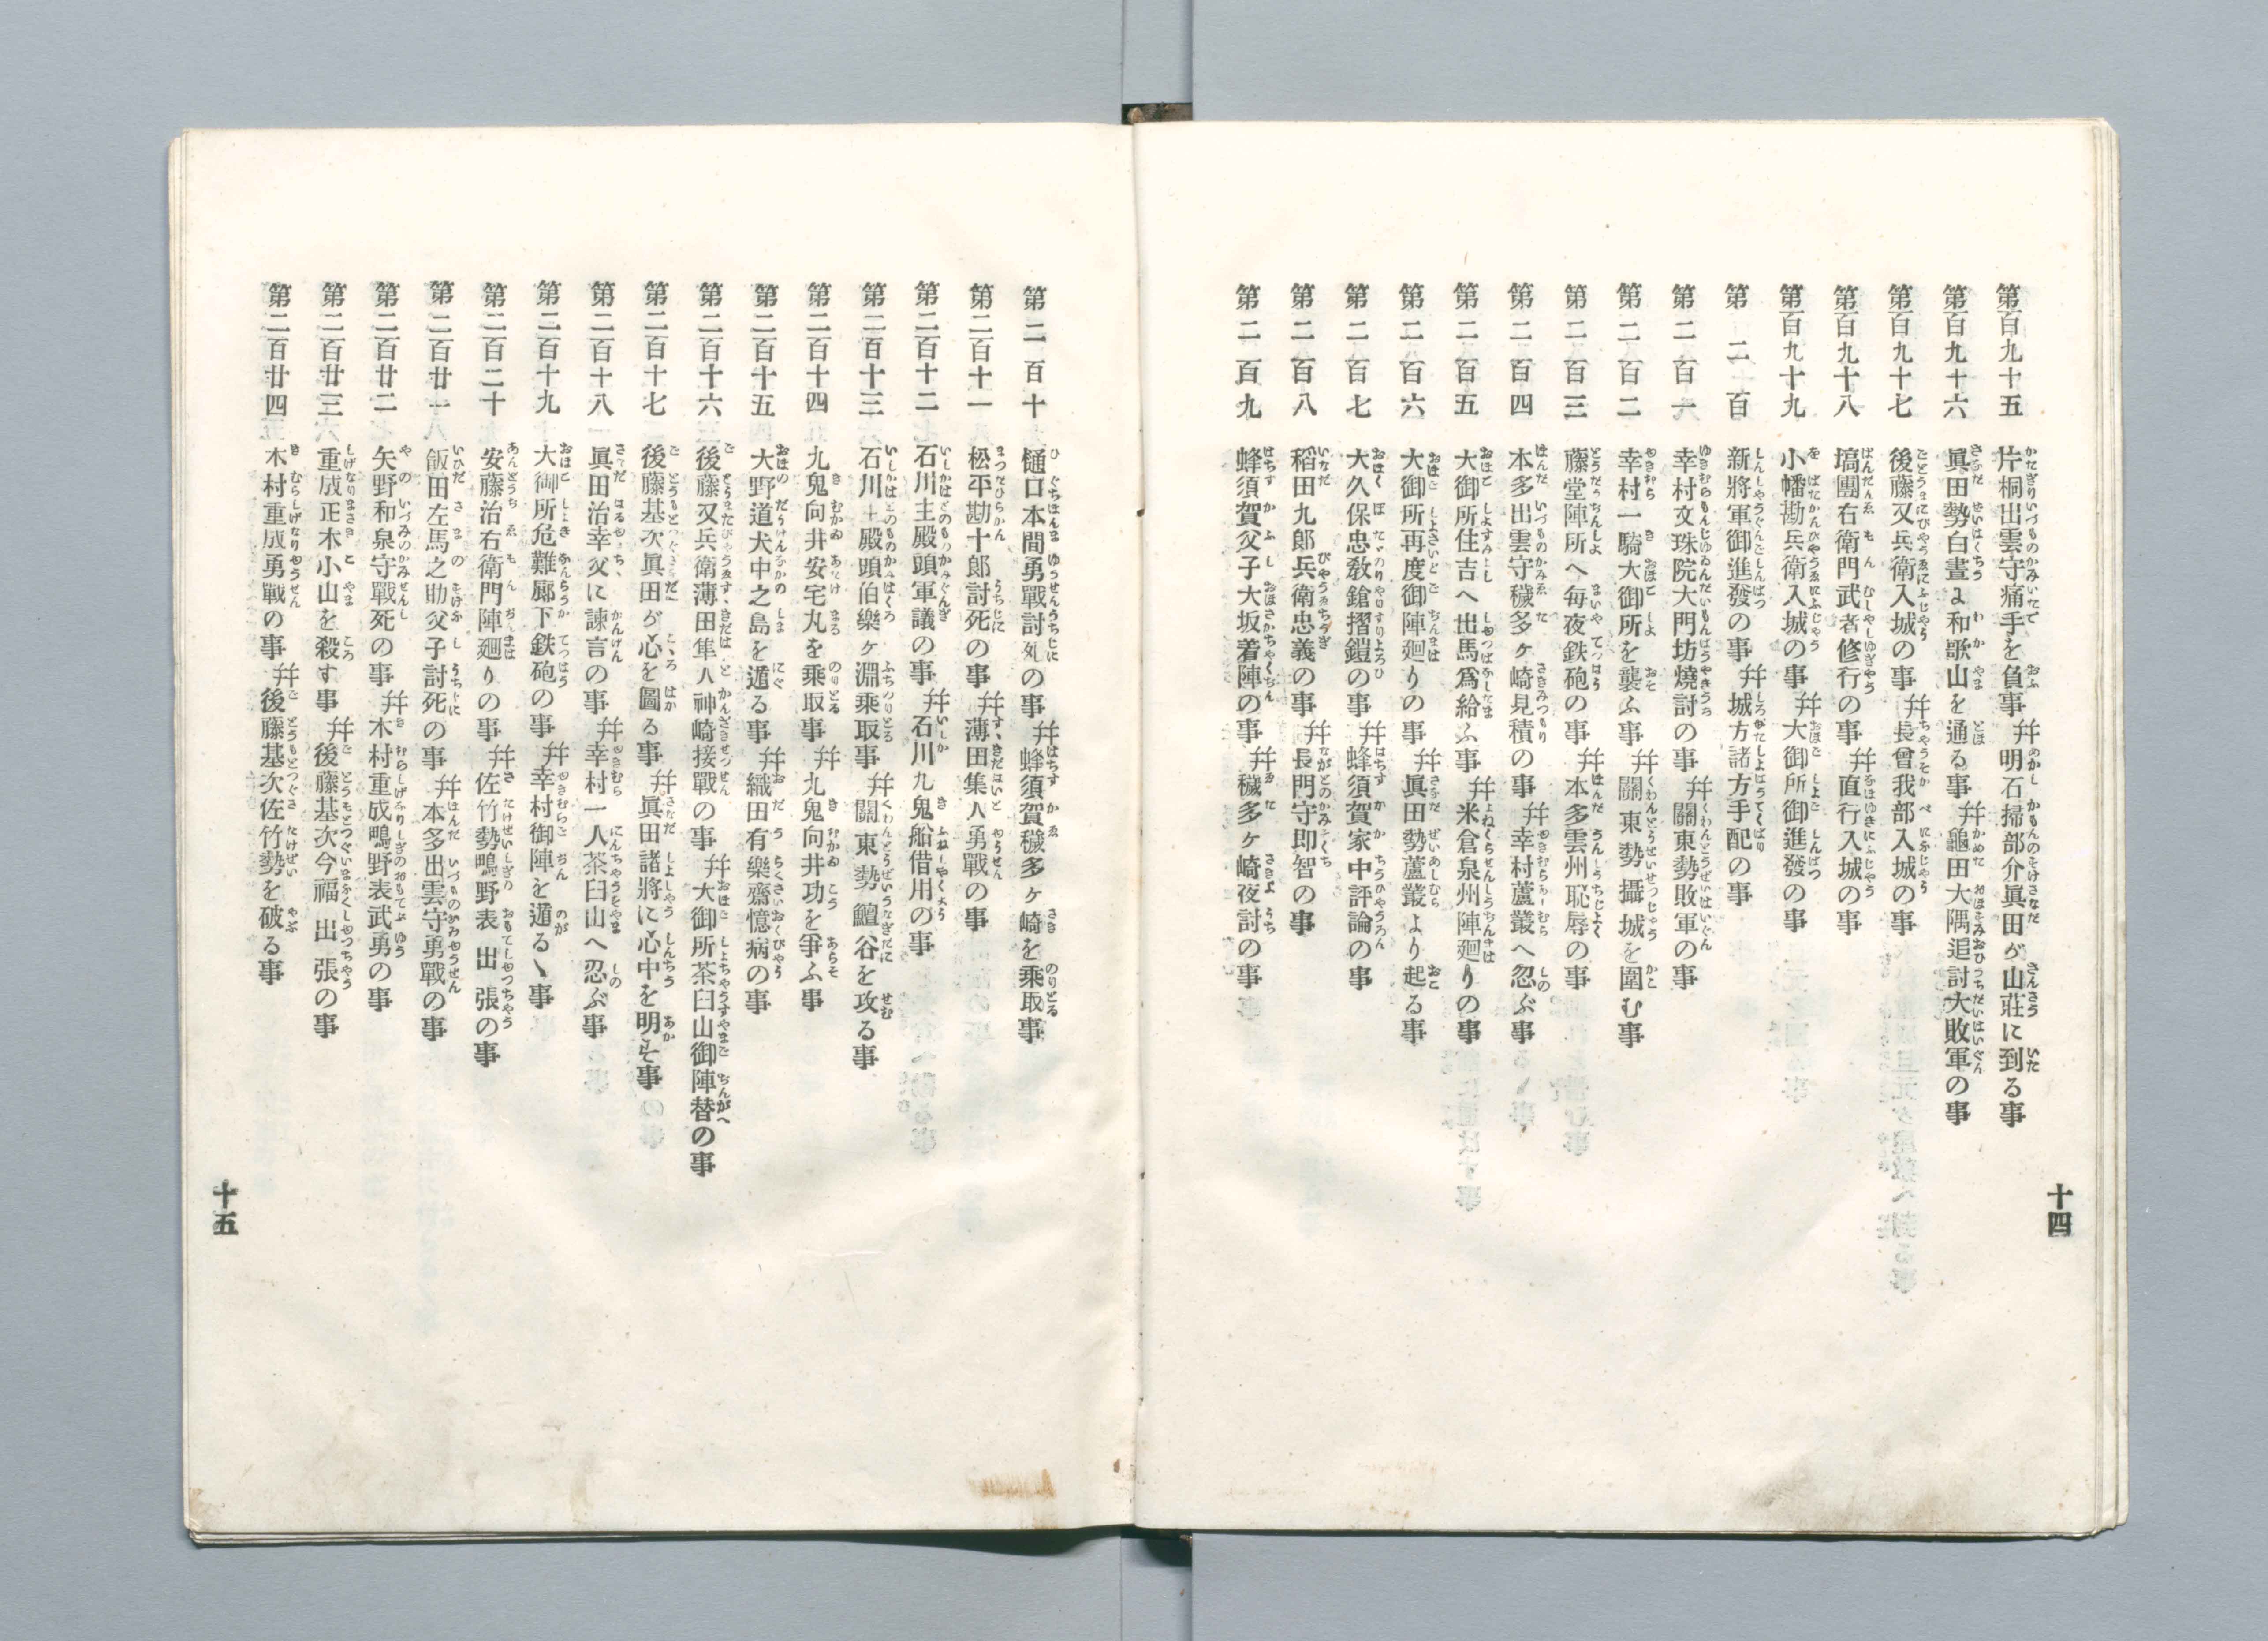 第百九十五 片桐出雲守痛手を負事 幷 明石掃部介眞田が山莊に到る事
第百九十六 眞田勢白晝に和歌山を通る事 幷 龜田大隅追討大敗軍の事
第百九十七 後藤又兵衛入城の事 幷 長曾我部入城の事
第百九十八 塙團右衛門武者修行の事 幷 直行入城の事
第百九十九 小幡勘兵衛入城の事 幷 大御所御進發の事
第二百 新將軍御進發の事 幷 城方諸方手配の事
第二百一 幸村文珠院大門坊燒討の事 幷 關東勢敗軍の事
第二百二 幸村一騎大御所を襲ふ事 幷 關東勢攝城を圍む事
第二百三 藤堂陣所へ每夜鉄砲の事 幷 本多雲州恥辱の事
第二百四 本多出雲守穢多ヶ崎見積の事 幷 幸村蘆叢へ忍ぶ事
第二百五 大御所住吉へ出馬爲給ふ事 幷 米倉泉州陣廻りの事
第二百六 大御所再度御陣廻りの事 幷 眞田勢蘆叢より起る事
第二百七 大久保忠敎鎗摺鎧の事 幷 蜂須賀家中評論の事
第二百八 稻田九郎兵衛忠義の事 幷 長門守即智の事
第二百九 蜂須賀父子大坂着陣の事 幷 穢多ヶ崎夜討の事
十四
第二百十 樋口本間勇戰討死の事 幷 蜂須賀穢多ヶ崎を乘取事
第二百十一 松平勘十郎討死の事 幷 薄田集人勇戰の事
第二百十二 石川主殿頭軍議の事 幷 石川九鬼船借用の事
第二百十三 石川主殿頭伯樂ヶ淵乘取事 幷 關東勢鱣谷を攻る事
第二百十四 九鬼向井安宅丸を乘取事 幷 九鬼向井功を爭ふ事
第二百十五 大野道犬中之島を遁る事 幷 織田有樂齋憶病の事
第二百十六 後藤又兵衛薄田隼人神崎接戰の事 幷 大御所茶臼山御陣替の事
第二百十七 後藤基次眞田が心を圖る事 幷 眞田諸將に心中を明す事
第二百十八 眞田治幸父に諫言の事 幷 幸村一人茶臼山へ忍ぶ事
第二百十九 大御所危難廊下鉄砲の事 幷 幸村御陣を遁るゝ事
第二百二十 安藤治右衛門陣廻りの事 幷 佐竹勢鴫野表出張の事
第二百廿一 飯田左馬之助父子討死の事 幷 本多出雲守勇戰の事
第二百廿二 矢野和泉守戰死の事 幷 木村重成鴫野表武勇の事
第二百廿三 重成正木小山を殺す事 幷 後藤基次今福出張の事
第二百廿四 木村重成勇戰の事 幷 後藤基次佐竹勢を破る事
十五